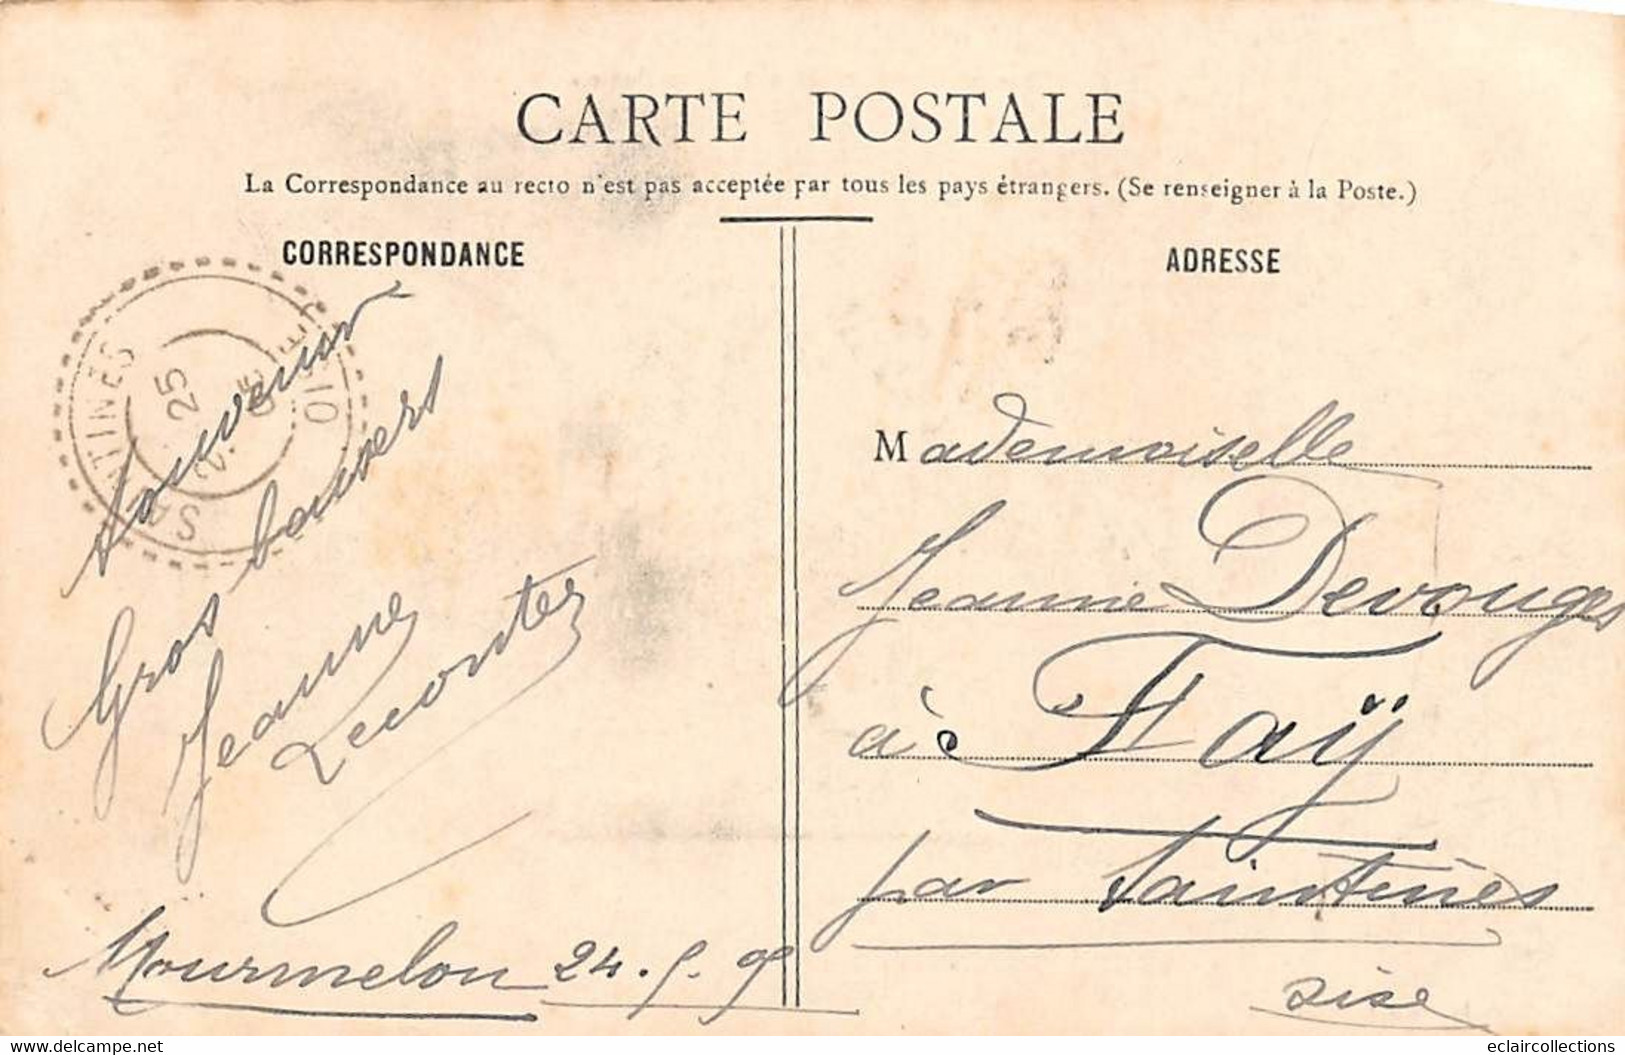 CARTE POSTALE
La Correspondance au recto n'est pas acceptée par tous les pays étrangers. (Se renseigner à la Poste.)
CORRESPONDANCE
ADRESSE
SAINTINES
25
OISE
Souvenir
Gros baisers
Jeanne
Lecontes
Mourmelon 24.5.05
Mademoiselle
Jeanne Devouges
à Faÿ
par Saintines
Oise
www.delcampe.net
eclaircollections